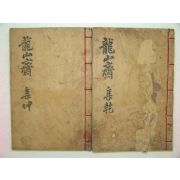 龍山齋 集乾
龍山齋 集坤